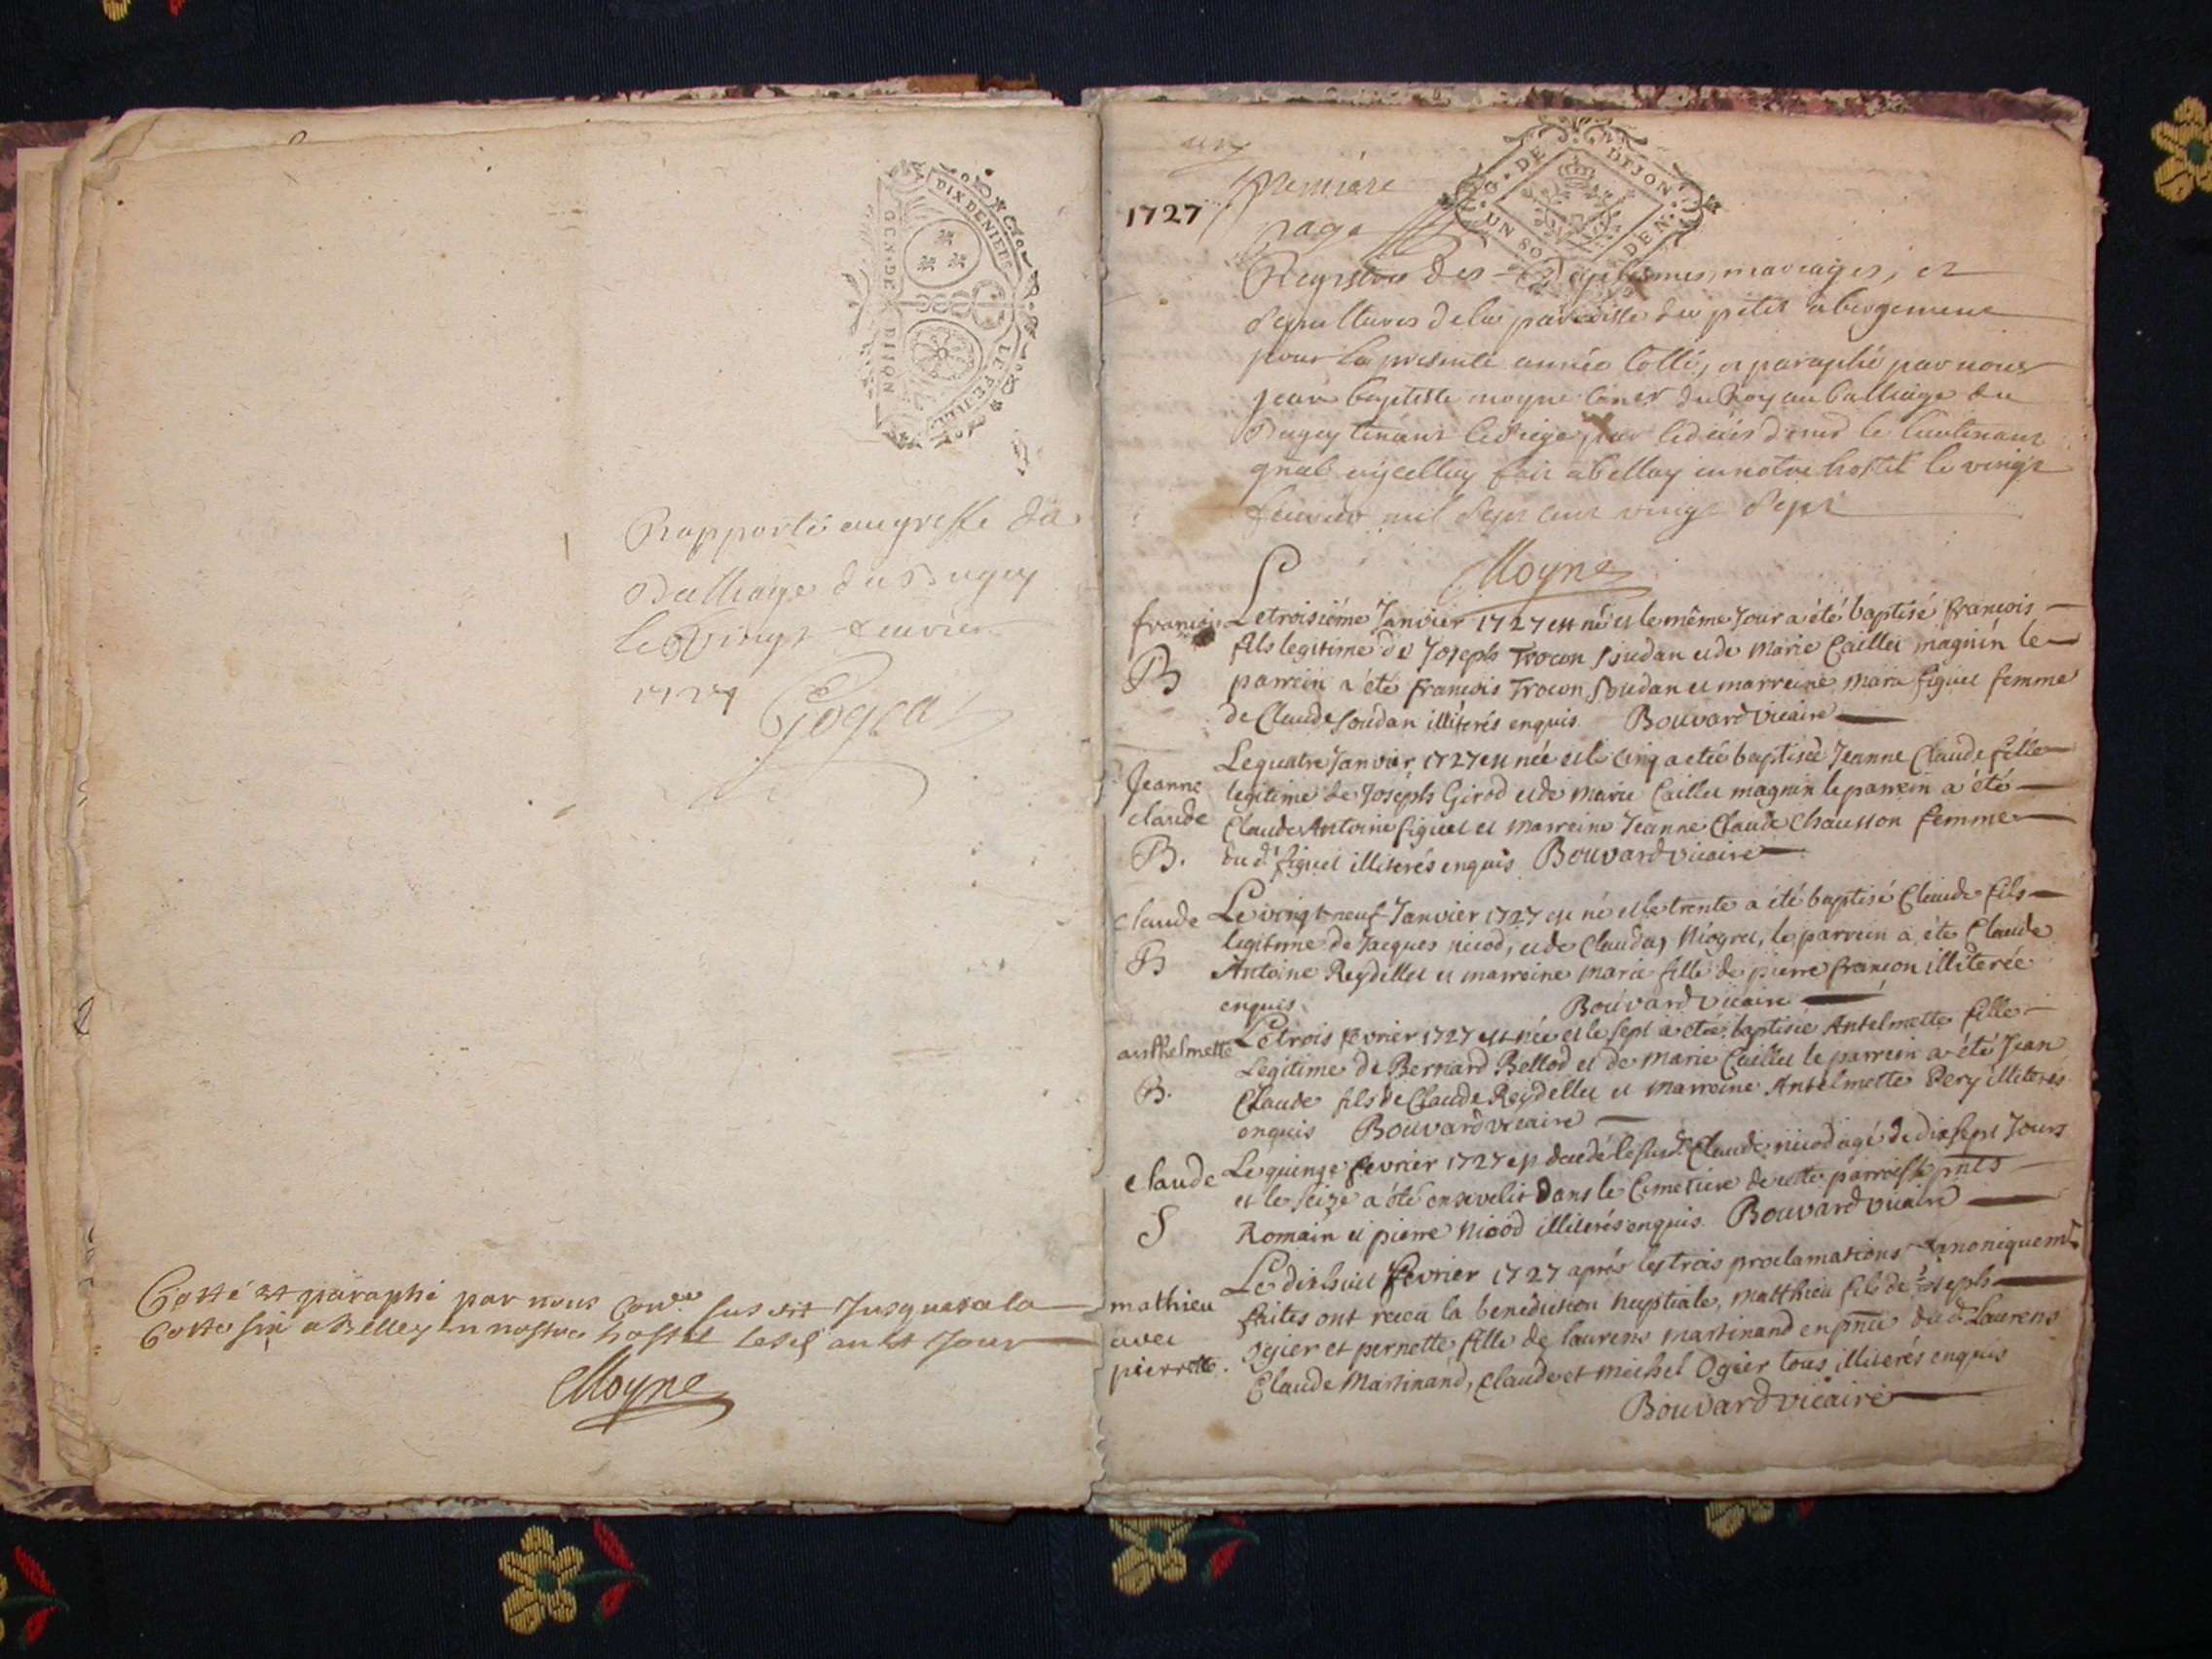 DIX DENIERS
LE FEUILL
GEN · DE DIJON
Rapporté au greffe du
Balliage du Bugey
le Vingt feuvrier
1727
Cotté et paraphé par nous Con.er susdit Jusques a la
Cotte six a Belley en nostre hostel lesd an et Jour
Moyne
1727
premiere
page
G · DE DIJON
UN SO DEN
Registre des Baptesmes, mariages, et
Sepultures de la parroisse du petit abergement
pour la presente année Cotté, et paraphé par nous
Jean baptiste moyne Coner du Roy au balliage du
Bugey tenant le Siege par le deces de mr le lieutenant
gnal en jcelluy fait a belley en notre hostel le vingt
feuvrier mil Sept cent vingt Sept
Moyne
francois Le troisiéme Janvier 1727 est né et le même Jour a été baptisé francois
fils legitime de Joseph Trocon Soudan et de Marie Caillet magnin le
B parrein a été francois Trocon Soudan et marreine Marie figuet femme
de Claude Soudan illiterés enquis. Bouvard vicaire
Le quatre Janvier 1727 est née et le cinq a eté baptisée Jeanne Claude fille
Jeanne legitime de Joseph Girod et de Marie Caillet magnin le parrein a été
claude Claude Antoine figuet et Marreine Jeanne Claude Chausson femme
B. du dt figuet illiterés enquis Bouvard vicaire
claude Le vingt neuf Janvier 1727 est né et le trente a été baptisé Claude fils
legitime de Jacques nicod, et de Clauda Niogret, le parrein a été Claude
B Antoine Reydellet et marreine marie fille de pierre françon illiterée
enquis Bouvard vicaire
anthelmette Le trois fevrier 1727 est née et le sept a etée baptisée Antelmette fille
Légitime de Bernard Bellod et de Marie Caillet le parrein a été Jean
B. Claude fils de Claude Reydellet et Marreine Antelmette Pery illiterés
enquis Bouvard vicaire
claude Le quinze fevrier 1727 est decedé le susd. Claude nicod agé de dix sept Jours
et le seize a été ensevelit dans le Cimetiere de cette parroisse pnts
S Romain et pierre Nicod illiterés enquis. Bouvard vicaire
Le dixhuit fevrier 1727 aprés les trois proclamations canoniquemt
mathieu faites ont receu la benediction nuptiale, Matthieu fils de Joseph
avec Ogier et pernette fille de laurens Martinand en pnce du dt Laurens
pierrette. Claude Martinand, Claude et Michel Ogier tous illiterés enquis
Bouvard vicaire